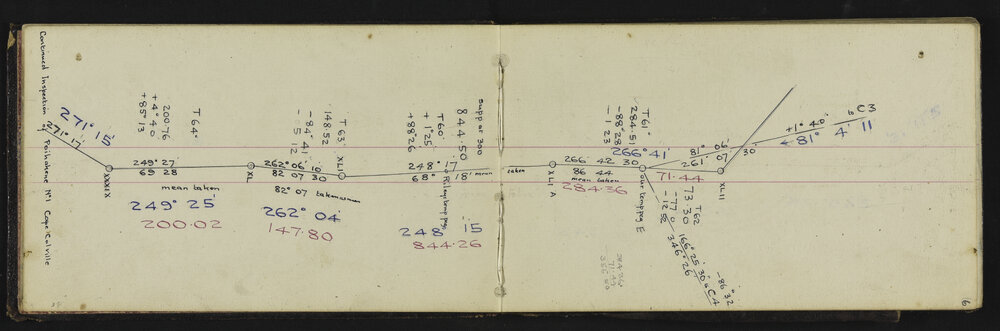 Continued Inspection
of Paihakene No 1 Cape Colville
271° 15'
271° 17'
XXXIX
+85° 13
+4° 40'
200.76
T 64°
249° 27'
69 28
mean taken
249° 25'
200.02
XL
-84° 41
148.52
T 63'
XLI
262° 06' 10
82 07 30
82° 07 taken as mean
262° 04'
147.80
+88° 26
+ 1° 25'
T 60
844.50
supp at 300
248° 17'
68° 18' mean
taken
o Riley temp peg
248 15
844.26
XLI A
-1 23
-88° 28
284.51
T 61°
266 42 30
86 44
mean taken
266° 41'
284.36
our temp peg E
81° 06
261° 07 30
71.44
XLII
T 62
73.30
-77
166° 25' 30" C4
346° 26
-86° 32
+1° 40'
to C3
← 81° 4' 11
284.36
71.44
6